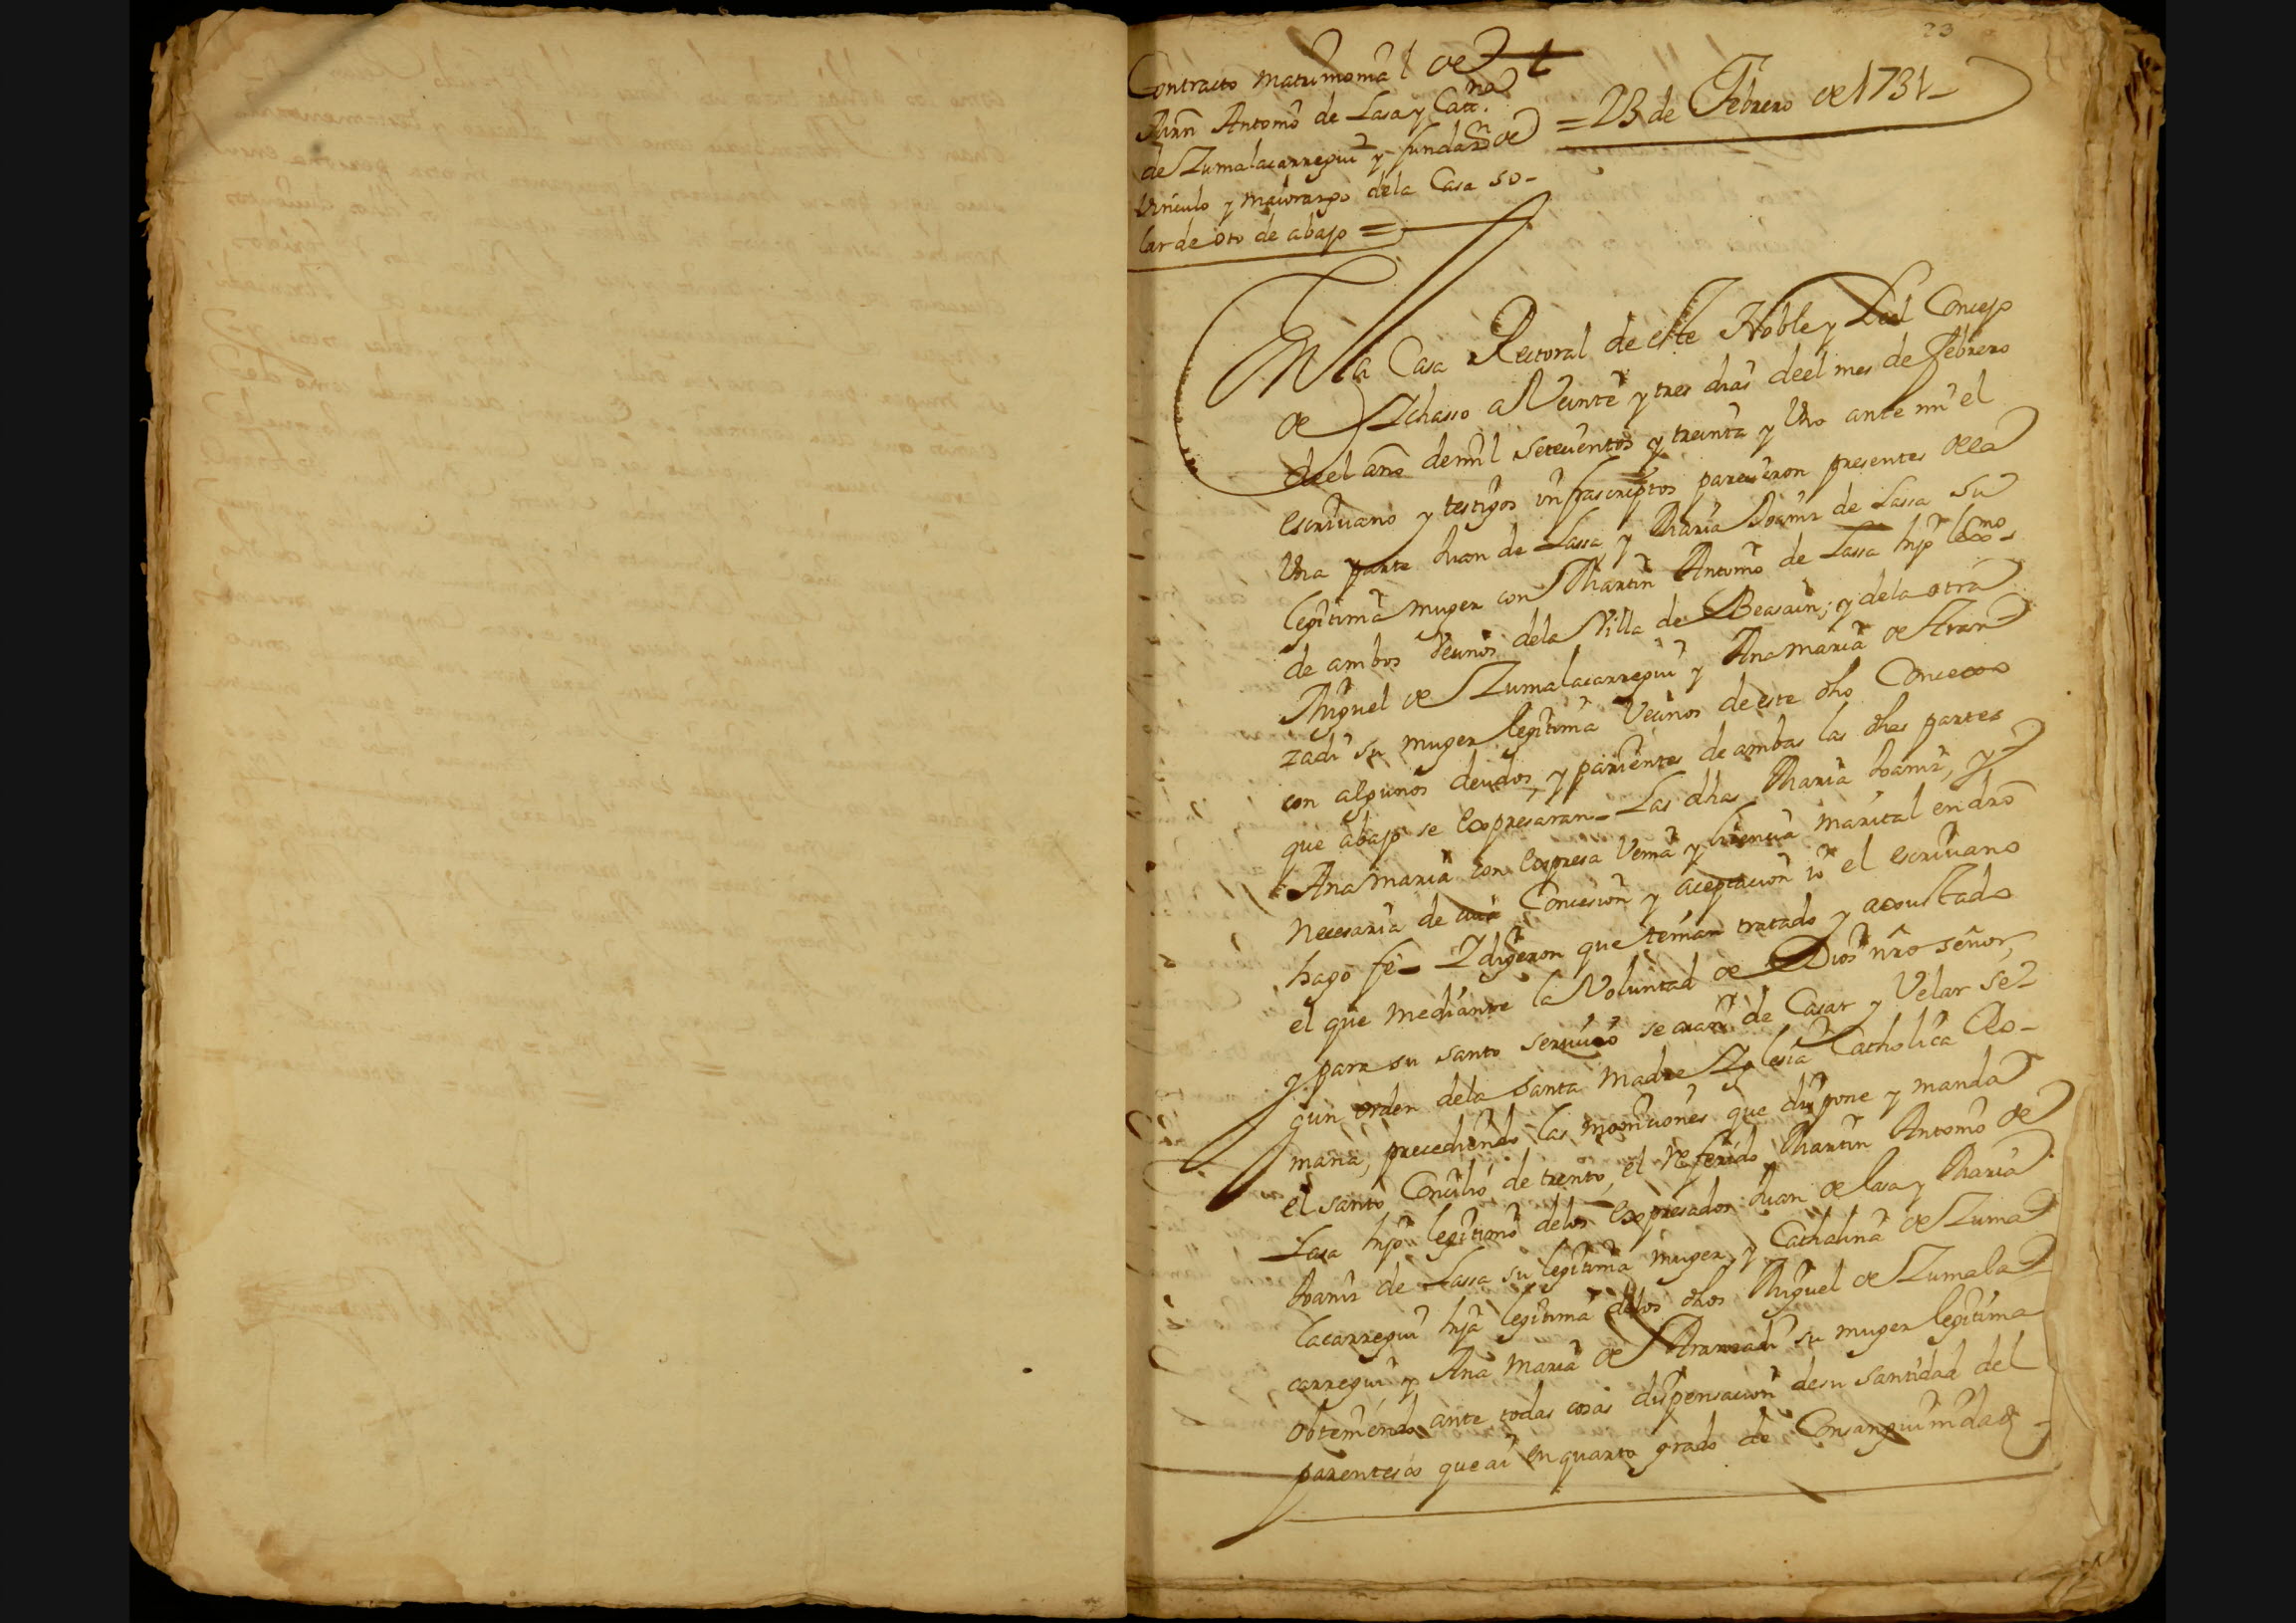 23
Contracto matrimonial de
Mrn Antonio de Lasa y Catt.na
de Zumalacarregui y fundazn de
Vinculo y maiorazgo dela Casa so-
lar de oto de abajo =
= 23 de Febrero de 1731 -
En la Casa Rectoral de este Noble y Leal Concejo
de Ichasso a Veinte y tres dias deel mes de febrero
deel año demil setecientos y treinta y Uno ante mi el
escrivano y testigos infrascriptos parecieron presentes dela
Una parte Juan de Lassa, y Maria Joaniz de Lassa su
legitima muger con Martin Antonio de Lassa hijo
de ambos Vecinos dela Villa de Beasain; y dela otra
Miguel de Zumalacarregui y Ana Maria de Aran
zadi su muger legitima Vecinos de este dho Concexo
con algunos deudos, y parientes de ambas las dhas partes
que abajo se expresaran - Las dhas Maria Joaniz, y
Ana Maria con expresa Venia y licencia marital en dro
necesaria de cuia Concesion y aceptacion io el escrivano
hago fe - I digeron que tenian tratado y axustado
el que mediante la Voluntad de Dios nro señor,
y para su santo servicio se aian de Casar y Velar se
gun orden dela santa Madre Iglesia Catholica Ro-
mana, precediendo las moniciones que dispone y manda
el santo Concilio de trento, el referido Martin Antonio de
Lasa hijo legitimo delos expresados Juan de lasa y Maria
Joaniz de Lassa su legitima muger, y Cathalina de Zuma
lacarregui hija legitima delos dhos Miguel de Zumala
carregui y Ana Maria de Aranzadi su muger legitima
obteniendo ante todas cosas dispensacion desu santidad del
parentesco que ai en quarto grado de Consanguinidad -